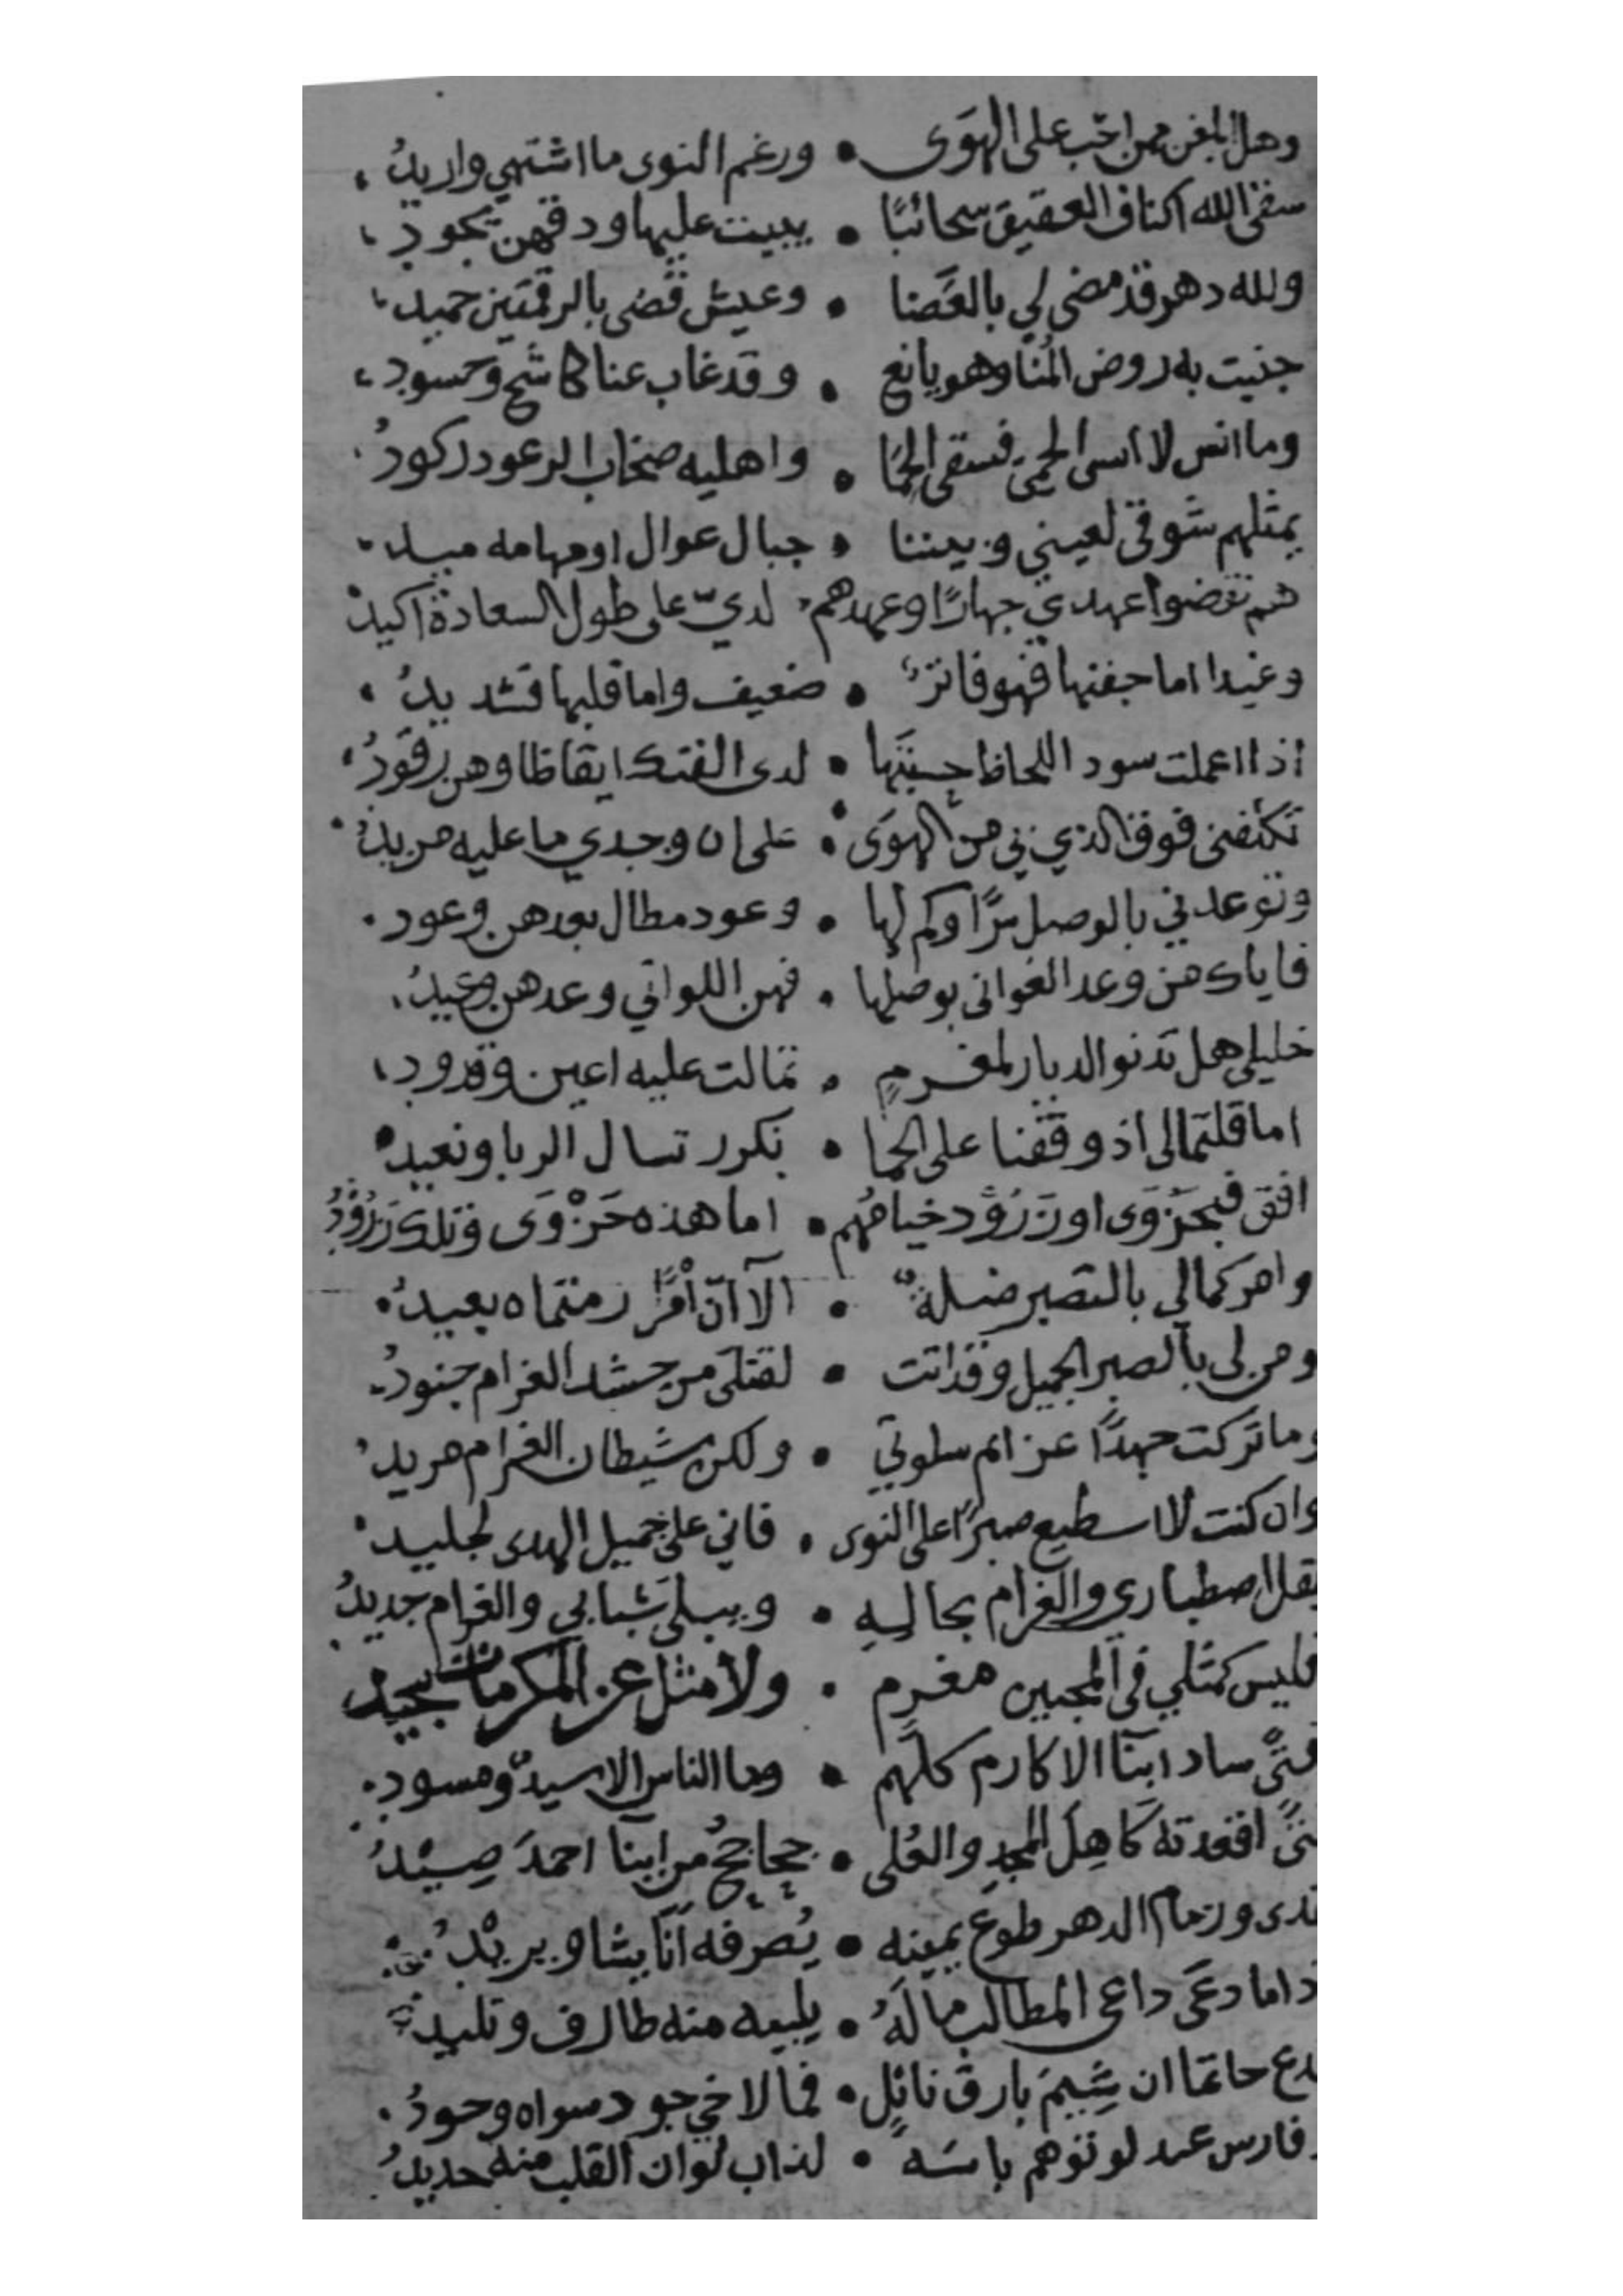 وهل ابلغن ممن احب على الهوى • ورغم النوى ما اشتهي واريد
سقى الله اكناف العقيق سحائبًا • يبيت عليها ودقهن يجود
ولله دهر قد مضى لي بالغضا • وعيش قضى بالرقمتين حميد
جنيت به روض المُنا وهو يانع • وقد غاب عنا كاشح وحسود
وما انس لا انسى الحمى فسقى الحما • واهليه صخاب الرعود ركود
يمثلهم شوقي لعيني وبيننا • جبال عوال او مهامه ميد
هم نقضوا عهدي جهارًا وعهدهم • لديّ على طول السعادة اكيد
وغيدا اما جفنها فهو فاتر • ضعيف واما قلبها فشديد
اذا اعملت سود اللحاظ حسبتها • لدى الفتك ايقاظا وهن رقود
تكلفني فوق الذي بي من الهوى • على ان وجدي ما عليه مزيد
وتوعدني بالوصل سرًا وكم لها • وعود مطال بعدهن وعود
فاياك من وعد الغواني بوصلها • فهن اللواتي وعدهن وعيد
خليلي هل تدنو الديار لمغرمٍ • تمالت عليه اعين وقدود
اما قلتما لي اذ وقفنا على الحما • نكرر تسال الربا ونعيد
افق فبحَزْوَى او زَرُوْد خيامُهم • اما هذه حَزْوَى وتلك زَرُوْدُ
وامركما لي بالتصبر ضلة • الآ انّ امْرًا رمتماه بعيد
ومن لي بالصبر الجميل وقد اتت • لقتلي من حشد الغرام جنود
وما تركت جهدًا عزائم سلوتي • ولكن شيطان الغرام مريد
وان كنت لا اسطيع صبرًا على النوى • فاني على جميل الهوى لجليد
يقل اصطباري والغرام بحاله • ويبلى شبابي والغرام جديد
فليس كمثلي في المحبين مغرم • ولا مثل عز المكرمات مجيد
فتىً ساد ابنآ الاكارم كلهم • وما الناس الا سيدٌ ومسود
فتىً اقعدته كاهِلَ المجدِ والعُلى • جحاجحُ من ابنآ احمدَ صِيْدُ
ندى وزمام الدهر طوع يمينه • يُصرفه انّا يشا ويريْدُ
اذا ما دعَى داعي المطالب ماله • يلبيه منه طارف وتليد
فدع حاتما ان شِيمَ بارق نائل • فما لاخي جود سواه وجود
وفارس عبد لو توهم باسَه • لذاب لو ان القلب منه حديد